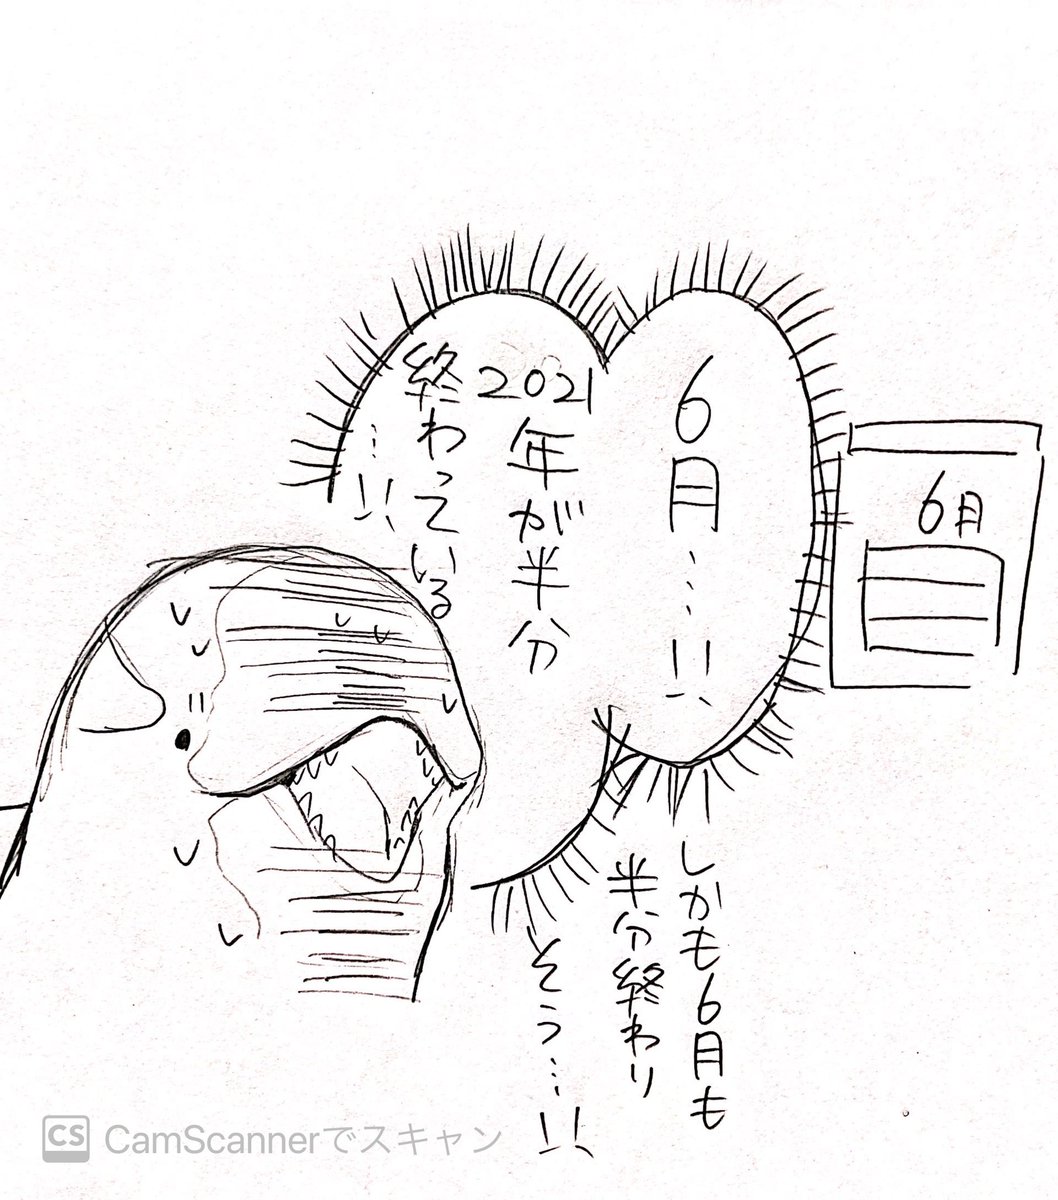 6月…!!
2021年が半分
終わっている
…!!
6月
しかも6月も
半分終わり
そう…!!
CS CamScannerでスキャン